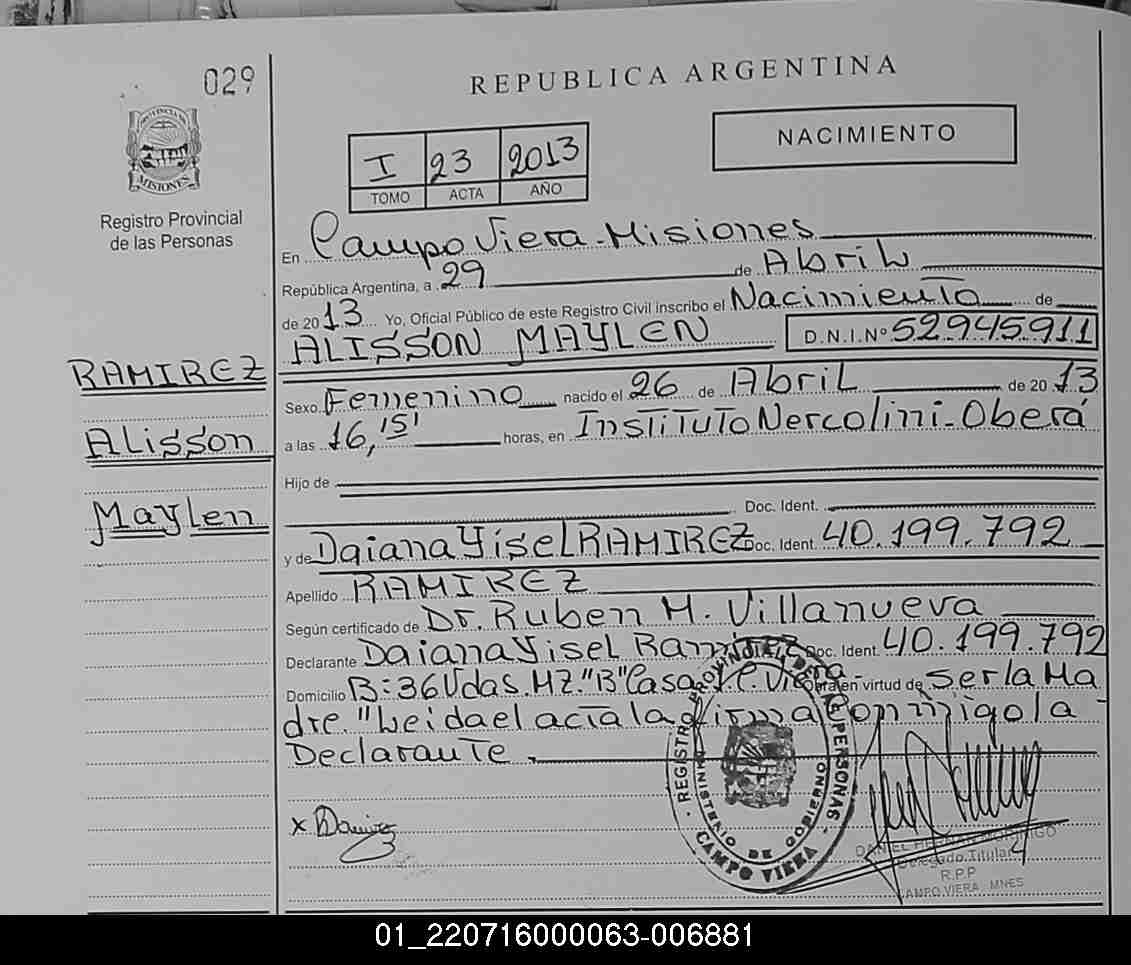 029
REPUBLICA ARGENTINA
PROVINCIA DE
MISIONES
Registro Provincial
de las Personas
I 23 2013
TOMO ACTA AÑO
NACIMIENTO
En Campo Viera - Misiones
República Argentina, a 29 de Abril
de 2013 Yo, Oficial Público de este Registro Civil inscribo el Nacimiento de
ALISSON MAYLEN D.N.I.Nº 52945911
RAMIREZ
Alisson
Maylen
Sexo Femenino nacido el 26 de Abril de 2013
a las 16,15' horas, en Instituto Nercolini - Oberá
Hijo de
Doc. Ident.
y de Daiana Yisel RAMIREZ Doc. Ident. 40.199.792
Apellido RAMIREZ
Según certificado de Dr. Ruben M. Villanueva
Declarante Daiana Yisel Ramirez Doc. Ident. 40.199.792
Domicilio B: 36 Vdas. MZ. "B" Casa Viera Obra en virtud de ser la Ma
dre. "Leida el acta la firma conmigo la
Declarante.
x Ramirez
REGISTRO PROVINCIAL DE LAS PERSONAS
MINISTERIO DE GOBIERNO
CAMPO VIERA
DANIEL
Delegado Titular
R.P.P
CAMPO VIERA MNES
01_220716000063-006881